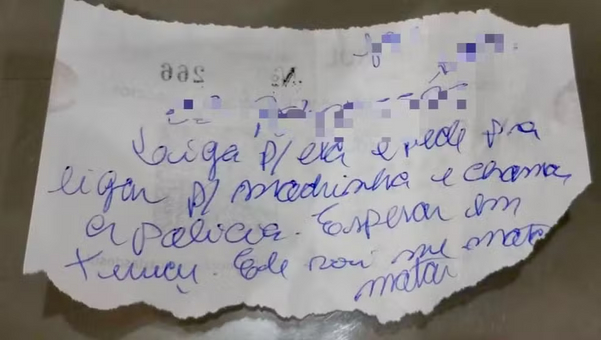 266 Nº
Liga p/ ela e pede pra
ligar p/ madrinha e chamar
a policia. Esperar em
Ele vai me matar
matar